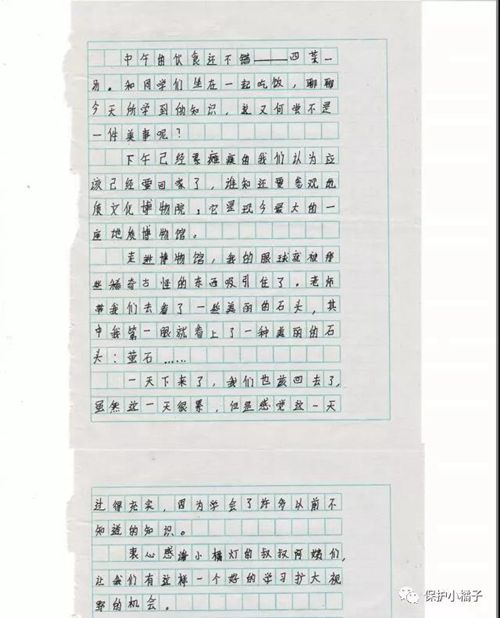 中午的饮食还不错——四菜一
易。和同学们坐在一起吃饭，聊聊
今天所学到的知识，这又何尝不是
一件美事呢？
下午已经累瘫痪的我们认为应
该已经要回家了，谁知还要参观地
质文化博物院，它是现今最大的一
座地质博物馆。
走进博物馆，我的眼球就被那
些稀奇古怪的东西吸引住了。老师
带我们去看了一些美丽的石头，其
中我第一眼就看上了一种美丽的石
头：萤石……
一天下来了，我们也该回去了，
虽然这一天很累，但是感觉这一天
过得充实，因为学会了许多以前不
知道的知识。
衷心感谢小橘灯的叔叔阿姨们，
让我们有这样一个好的学习扩大视
野的机会。
保护小橘子